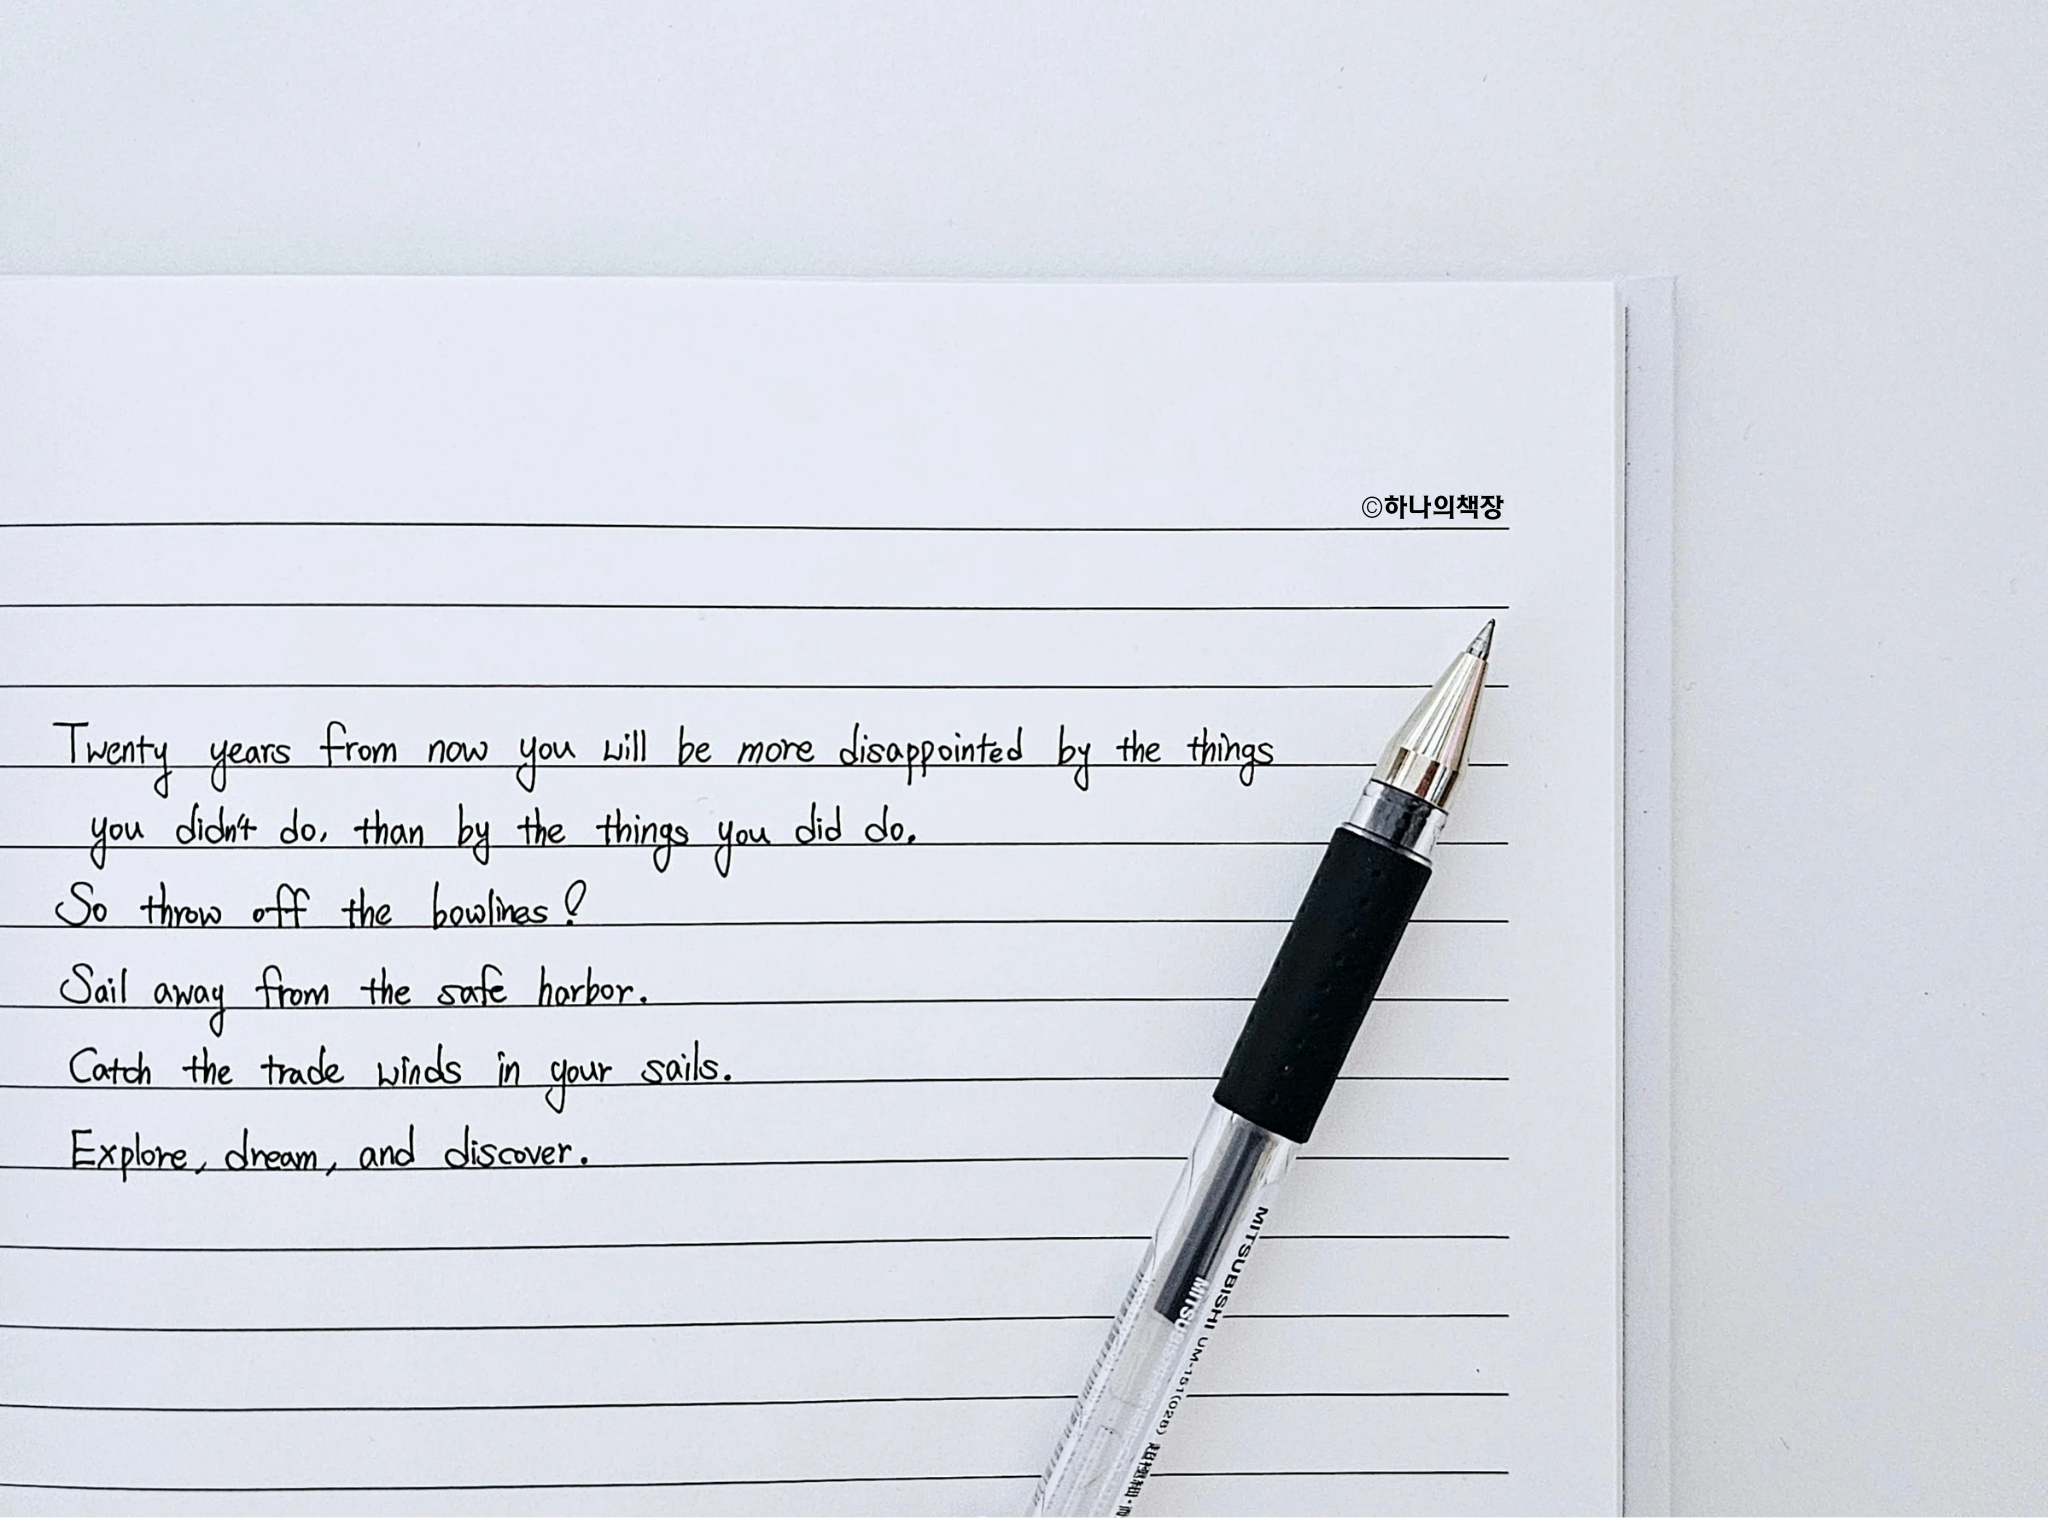 ©하나의책장
Twenty years from now you will be more disappointed by the things
you didn't do, than by the things you did do.
So throw off the bowlines!
Sail away from the safe harbor.
Catch the trade winds in your sails.
Explore, dream, and discover.
MITSUBISHI UM-151(028) 超極細・
MITSUB